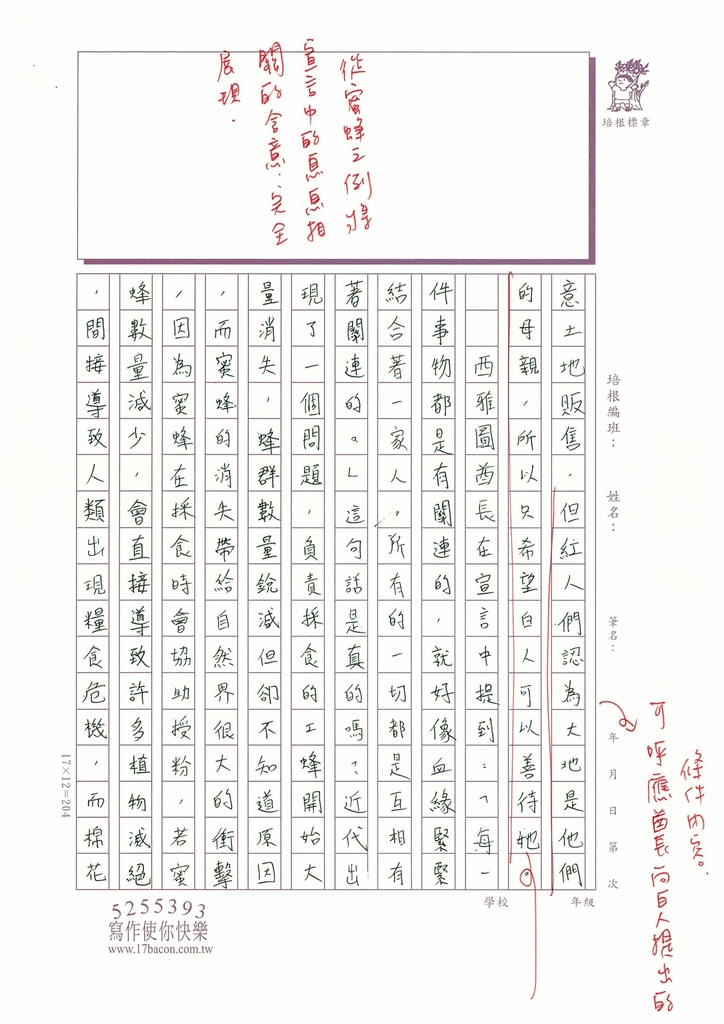 從蜜蜂之例將
宣言中的息息相
關的含意.完全
展現.
培根標章
培根編班：
姓名：
筆名：
年 月 日 第 次
意土地販售.但紅人們認為大地是他們
的母親，所以只希望白人可以善待她。
西雅圖酋長在宣言中提到：「每一
件事物都是有關連的，就好像血緣緊緊
結合著一家人，所有的一切都是互相有
著關連的。」這句話是真的嗎？近代出
現了一個問題，負責採食的工蜂開始大
量消失，蜂群數量銳減但卻不知道原因
，而蜜蜂的消失帶給自然界很大的衝擊
，因為蜜蜂在採食時會協助授粉，若蜜
蜂數量減少，會直接導致許多植物滅絕
，間接導致人類出現糧食危機，而棉花
可呼應酋長向白人提出的
條件內容。
17×12=204
學校
年級
5255393
寫作使你快樂
www.17bacon.com.tw